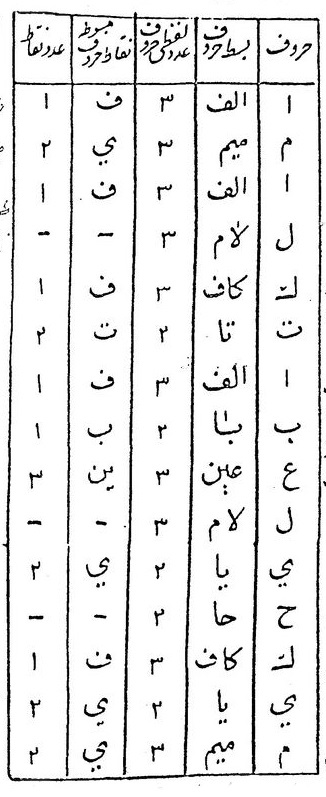 حروف بسط حروف عدد لفظی حروف نقاط حروف مبسوط عدد نقاط
ا الف ۳ ف ۱
م ميم ۳ ي ۲
ا الف ۳ ف ۱
ل لام ۳ - -
ك كاف ۳ ف ۱
ت تا ۲ ت ۲
ا الف ۳ ف ۱
ب با ۲ ب ۱
ع عين ۳ ين ۳
ل لام ۳ - -
ي يا ۲ ي ۲
ح حا ۲ - -
ك كاف ۳ ف ۱
ي يا ۲ ي ۲
م ميم ۳ ي ۲